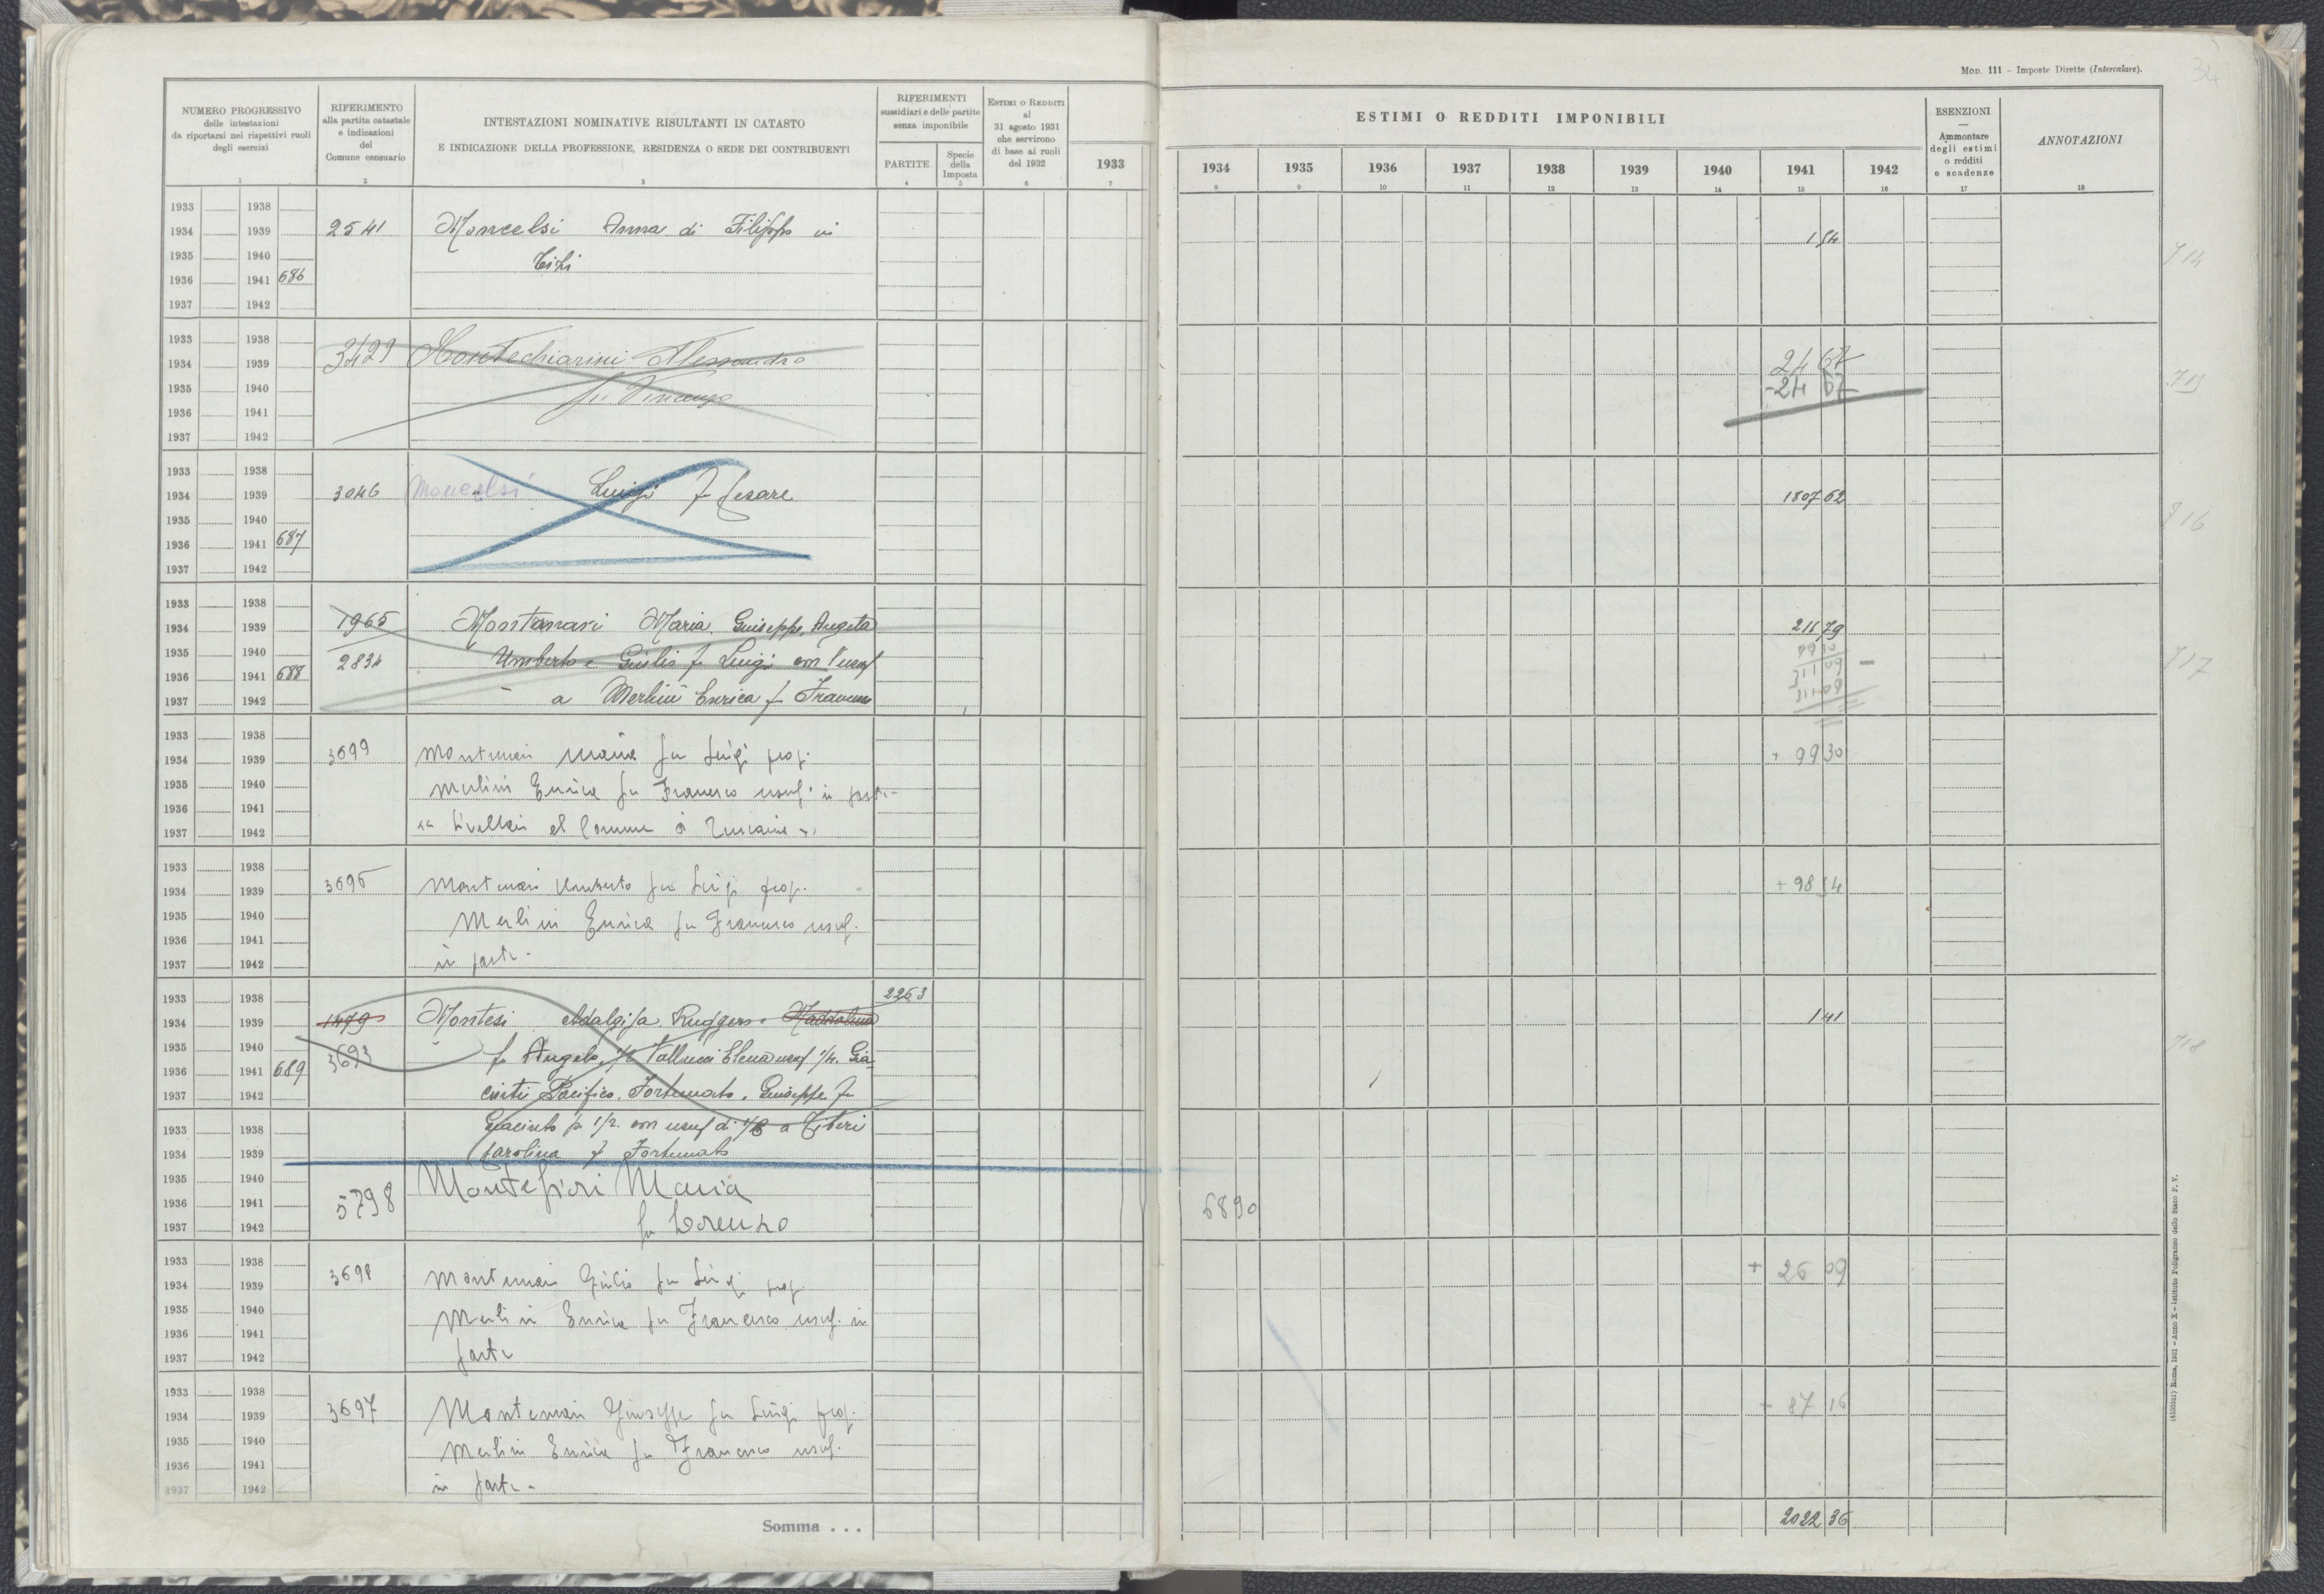 Mon. 111 - Imposte Dirette (Intercalare).
34
NUMERO PROGRESSIVO
delle intestazioni
da riportarsi nei rispettivi ruoli
degli esercizi
1
RIFERIMENTO
alla partita catastale
e indicazioni
del
Comune censuario
2
INTESTAZIONI NOMINATIVE RISULTANTI IN CATASTO
E INDICAZIONE DELLA PROFESSIONE, RESIDENZA O SEDE DEI CONTRIBUENTI
3
RIFERIMENTI
sussidiari e delle partite
senza imponibile
PARTITE
4
Specie
della
Imposta
5
ESTIMI O REDDITI
al
31 agosto 1931
che servirono
di base ai ruoli
del 1932
6
ESTIMI O REDDITI IMPONIBILI
1933 1934 1935 1936 1937 1938 1939 1940 1941 1942
7 8 9 10 11 12 13 14 15 16
ESENZIONI
Ammontare
degli estimi
o redditi
e scadenze
17
ANNOTAZIONI
18
1933 1938
1934 1939 2541 Moncelsi Anna di Filippo in 1 54
1935 1940 714
1936 1941 686
1937 1942
1933 1938
1934 1939 3429 Montechiarini Alessandro 24 67
1935 1940 fu Vincenzo -24 67 715
1936 1941
1937 1942
1933 1938
1934 1939 3046 Moncelsi Luigi f Cesare 1807 62
1935 1940 716
1936 1941 687
1937 1942
1933 1938
1934 1939 1965 Montanari Maria, Guiseppe, Angeta 211 79
1935 1940 2834 Umberto e Giulio f Luigi con l'usuf
1936 1941 688 717
1937 1942 a Merlini Enrica f Francesco
1933 1938
1934 1939 3699 Montanari Maria fu Luigi prop. + 99 30
1935 1940 Merlini Enrica fu Francesco usuf. in parte
1936 1941
1937 1942
1933 1938
1934 1939 3695 Montanari Umberto fu Luigi prop. + 98 54
1935 1940
1936 1941 Merlini Enrica fu Francesco usuf.
1937 1942 in parte
1933 1938 2263
1934 1939 1479 Montesi Adalgisa Ruggero Maddalena 1 41
1935 1940 3693 f Angelo, 1/2 Vallucci Elena usuf 1/4. Gia- 718
1936 1941 689
1937 1942 cinti Pacifico, Fortunato, Guiseppe fu
1933 1938 Giacinto p 1/2. con usuf di 1/6 a Tiberi
1934 1939 Carolina f Fortunato
1935 1940 Montefiori Maria
1936 1941 5798 68 90
1937 1942 fu Lorenzo
1933 1938
1934 1939 3698 Montanari Giulio fu Luigi prop. + 26 09
1935 1940 Merlini Enrica fu Francesco usuf. in
1936 1941
1937 1942 parte
1933 1938
1934 1939 3697 Montanari Giuseppe fu Luigi prop. + 87 16
1935 1940 Merlini Enrica fu Francesco usuf.
1936 1941
1937 1942 in parte
Somma . . . 2022 36
Roma, 1931 - Anno X - Istituto Poligrafico dello Stato P. V.